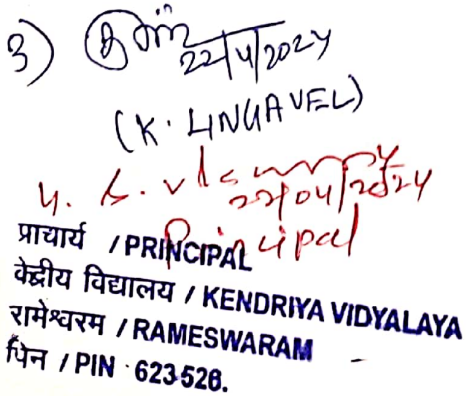 3)
22/4/2024
(K. LINGAVEL)
22/04/2024
Principal
प्राचार्य / PRINCIPAL
केंद्रीय विद्यालय / KENDRIYA VIDYALAYA
रामेश्वरम / RAMESWARAM
पिन / PIN 623526.